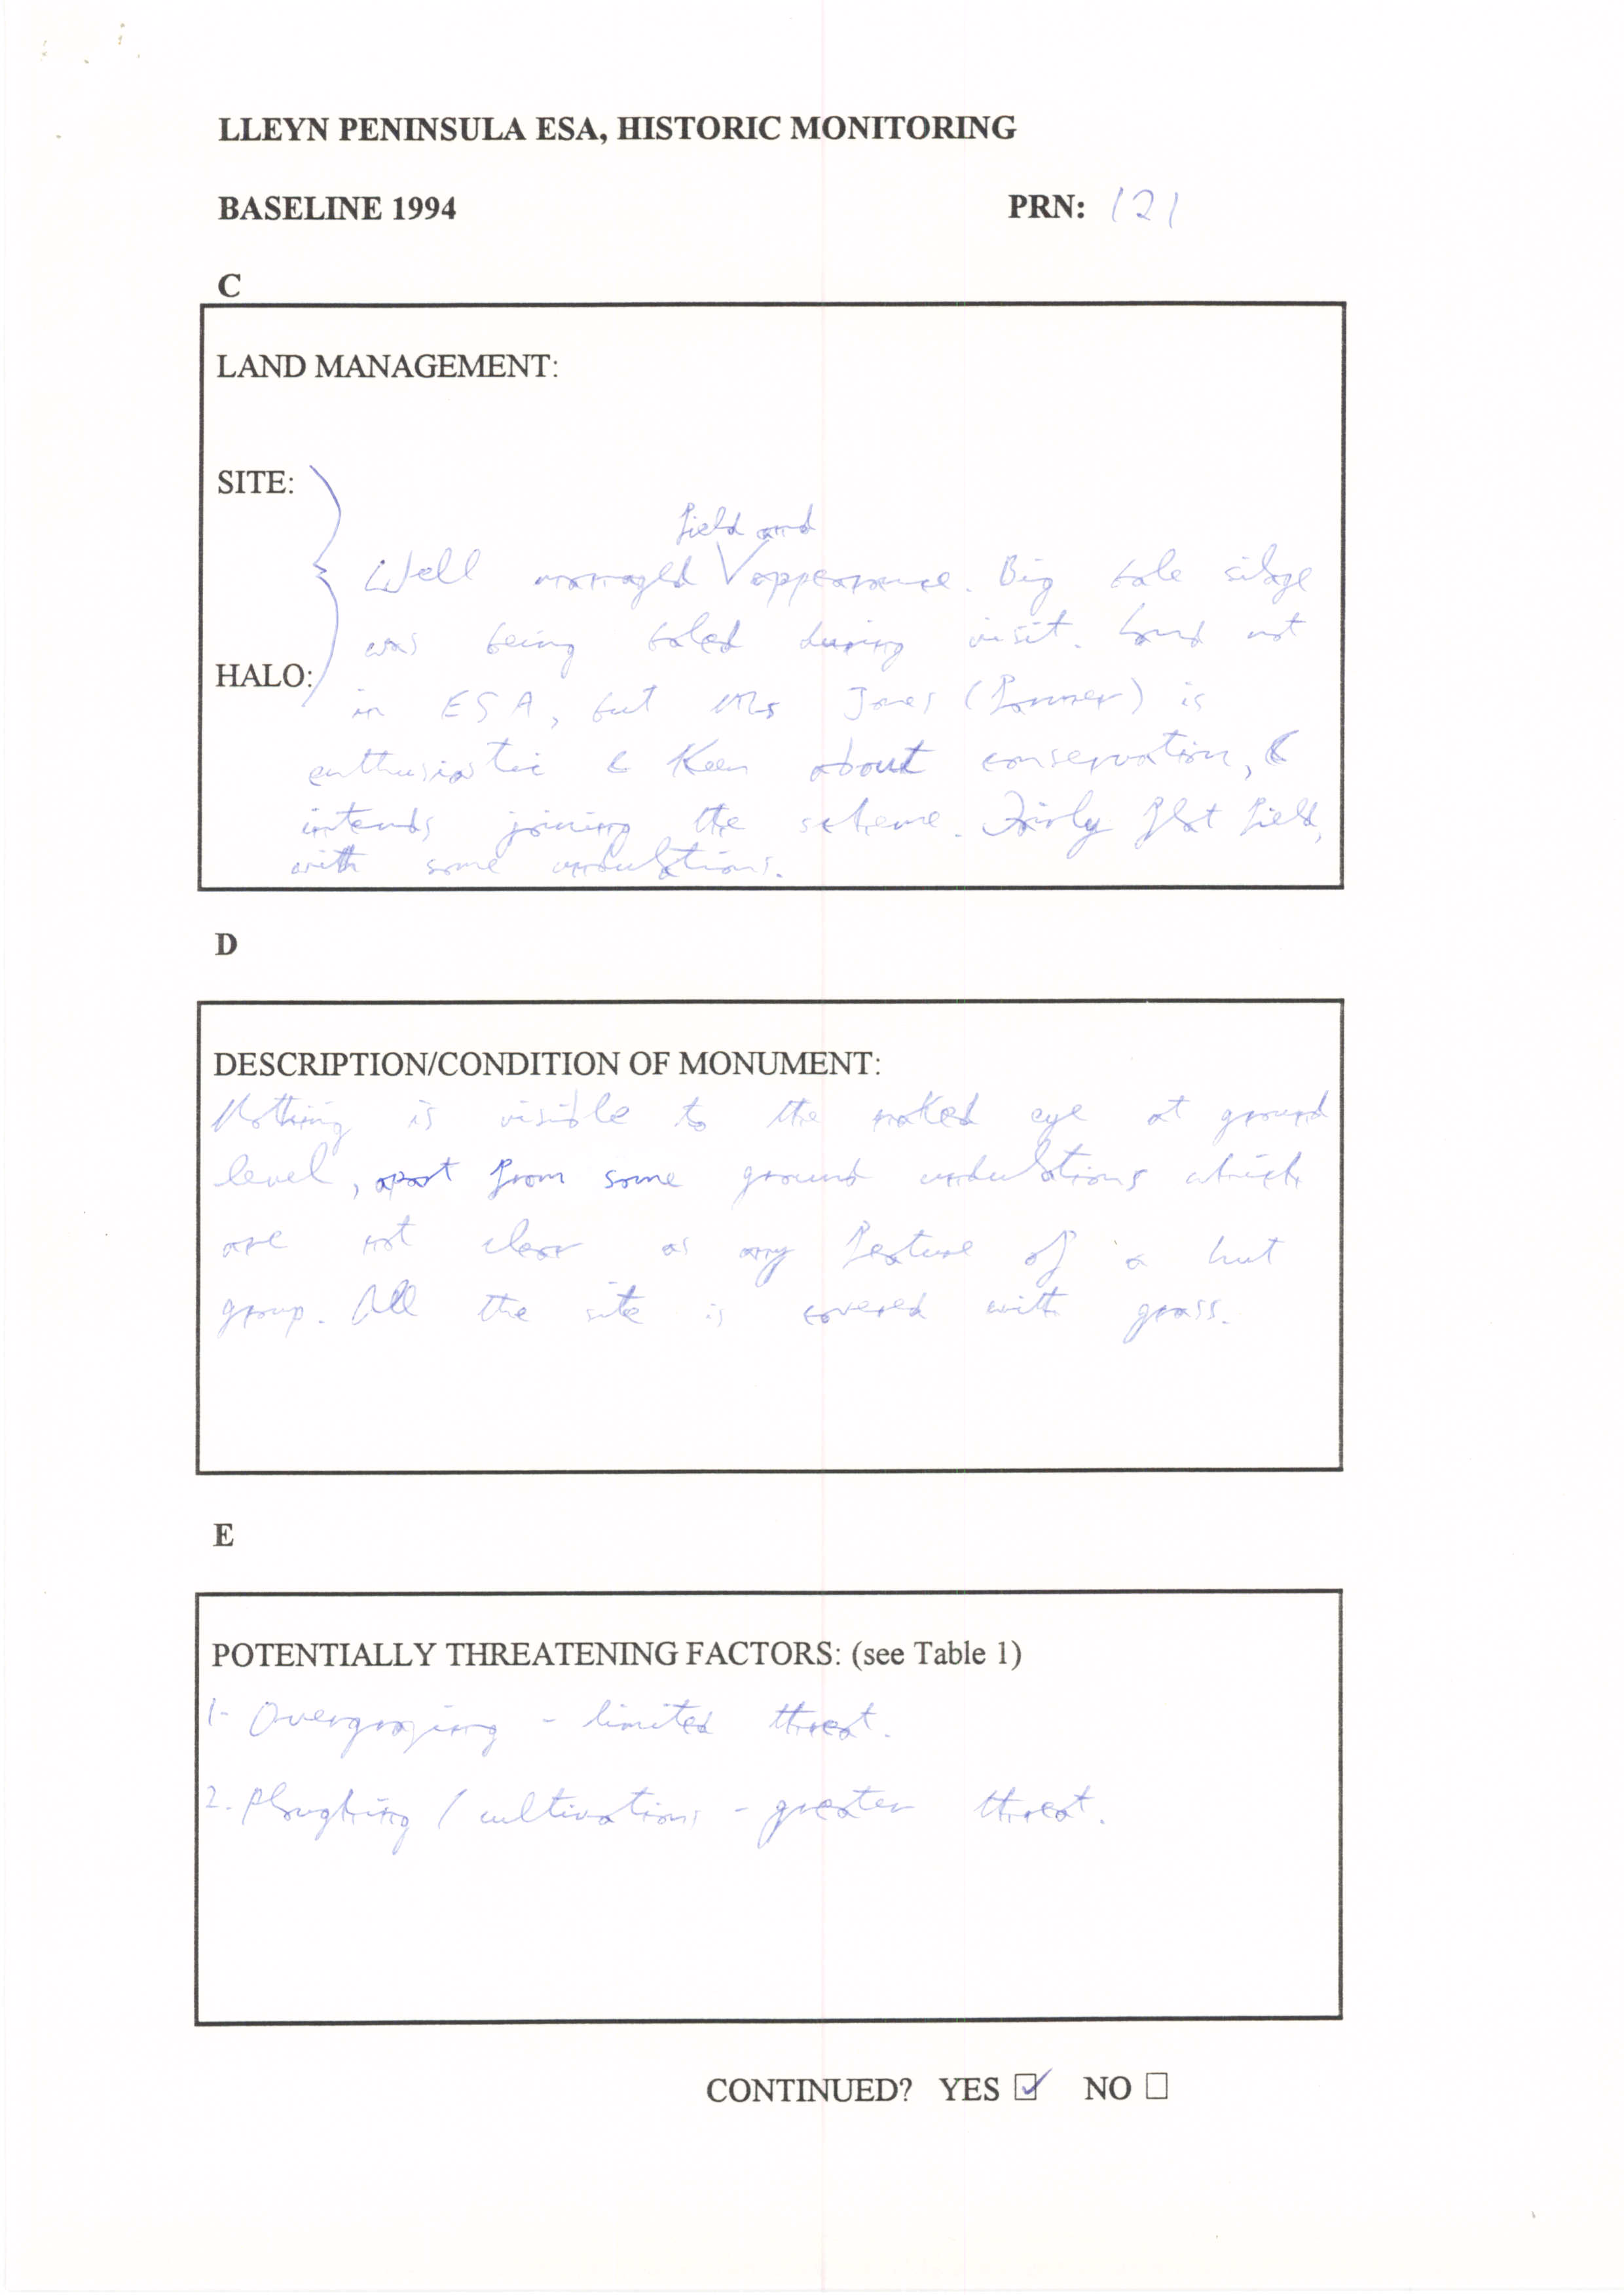 LLEYN PENINSULA ESA, HISTORIC MONITORING
BASELINE 1994 PRN: 121
C
LAND MANAGEMENT:
SITE:
field and
Well managed appearance. Big bale silage
was being baled during visit. Land not
HALO:
in ESA, but Mrs Jones (Farmer) is
enthusiastic & keen about conservation, &
intends joining the scheme. Fairly flat field,
with some undulations.
D
DESCRIPTION/CONDITION OF MONUMENT:
Nothing is visible to the naked eye at ground
level, apart from some ground undulations which
are not clear as any feature of a hut
group. All the site is covered with grass.
E
POTENTIALLY THREATENING FACTORS: (see Table 1)
1. Overgrazing - limited threat.
2. Ploughing / cultivations - greater threat.
CONTINUED? YES ☑ NO ☐